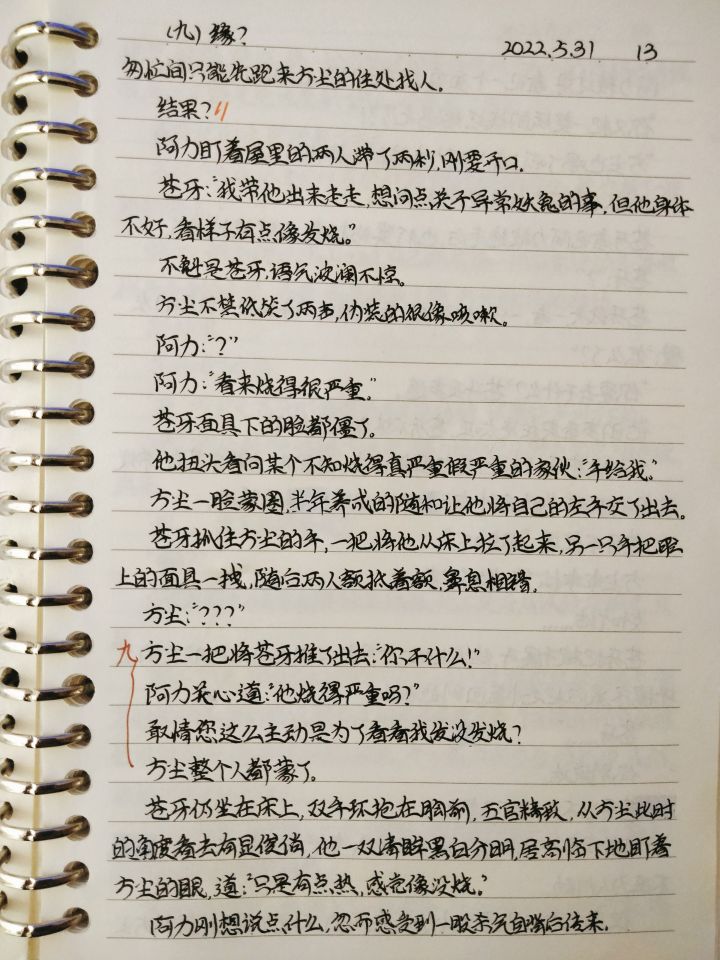 (九) 缘? 2022.5.31 13
匆忙间只能先跑来方尘的住处找人。
结果? 11
阿力盯着屋里的两人滞了两秒,刚要开口。
苍牙:“我带他出来走走,想问点关于异常妖兔的事,但他身体
不好,看样子有点像发烧。”
不愧是苍牙,语气波澜不惊。
方尘不禁低笑了两声,伪装的很像咳嗽。
阿力:“?”
阿力:“看来烧得很严重。”
苍牙面具下的脸都僵了。
他扭头看向某个不知烧得真严重假严重的家伙:“手给我。”
方尘一脸蒙圈,半年养成的随和让他将自己的左手交了出去。
苍牙抓住方尘的手,一把将他从床上拉了起来,另一只手把眼
上的面具一拽,随后两人额抵着额,鼻息相错。
方尘:“???”
九 方尘一把将苍牙推了出去:“你干什么!”
阿力关心道:“他烧得严重吗?”
敢情您这么主动是为了看看我发没发烧?
方尘整个人都蒙了。
苍牙仍坐在床上,双手环抱在胸前,五官精致,从方尘此时
的角度看去有显俊俏,他一双清眸黑白分明,居高临下地盯着
方尘的眼,道:“只是有点热,感觉像没烧。”
阿力刚想说点什么,忽而感受到一股杀气自背后传来。